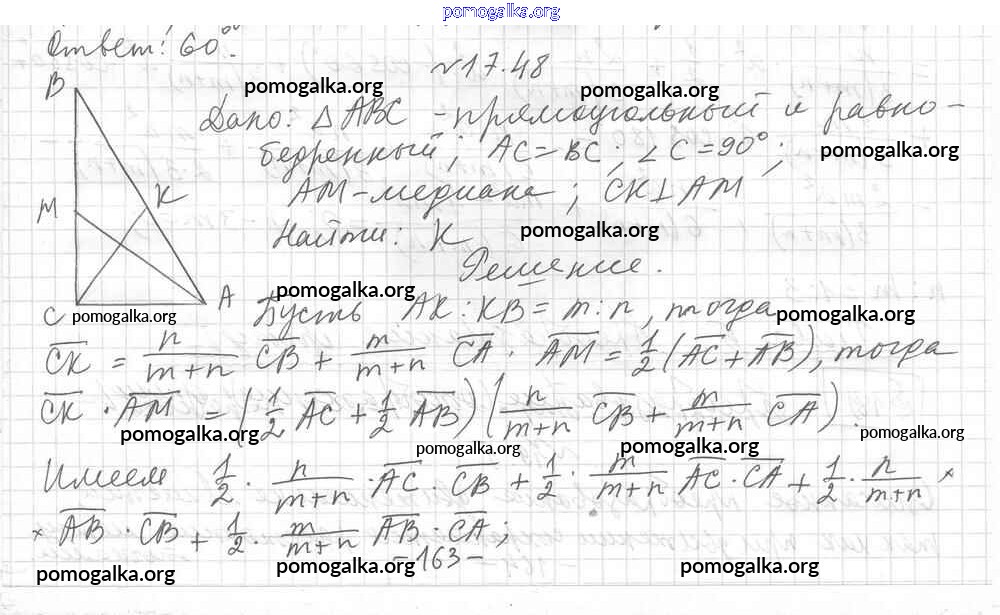 pomogalka.org
Ответ: 60°.
№17.48
pomogalka.org pomogalka.org
B
Дано: △ABC – прямоугольный и равно-
бедренный; AC=BC; ∠C=90°; pomogalka.org
M K
AM-медиана; CK⊥AM
Найти: K pomogalka.org
Решение.
pomogalka.org
C A
pomogalka.org Пусть AK:KB = m:n, тогда pomogalka.org
\overline{CK} = \frac{n}{m+n} \overline{CB} + \frac{m}{m+n} \overline{CA}. \overline{AM} = \frac{1}{2}(\overline{AC}+\overline{AB}), тогда
\overline{CK} · \overline{AM} = (\frac{1}{2} \overline{AC} + \frac{1}{2} \overline{AB}) (\frac{n}{m+n} \overline{CB} + \frac{m}{m+n} \overline{CA}).
pomogalka.org pomogalka.org pomogalka.org pomogalka.org
Имеем \frac{1}{2} · \frac{n}{m+n} · \overline{AC} · \overline{CB} + \frac{1}{2} · \frac{m}{m+n} \overline{AC} · \overline{CA} + \frac{1}{2} · \frac{n}{m+n} ×
× \overline{AB} · \overline{CB} + \frac{1}{2} · \frac{m}{m+n} \overline{AB} · \overline{CA};
–163–
pomogalka.org pomogalka.org pomogalka.org